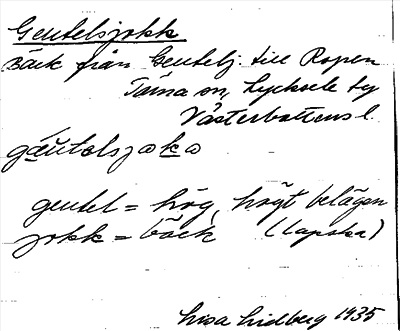 Geutelsjokk
Bäck från Geutelj. till Ropen
Tärna sn, Lycksele tg
Västerbottens l.
gæ̀ùtalsjaka
geutel = hög, högt belägen
jokk = bäck (lapska)
Lisa Lidberg 1935